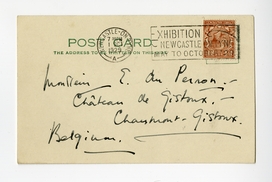 POST CARD
THE ADDRESS TO BE
NEWCASTLE-ON-
7 PM
1929
A
EXHIBITION
NEWCASTLE
MAY TO OCTOBER 1929
Monsieur E. du Perron.—
Château de Gistoux.—
Chaumont-Gistoux.
Belgium.